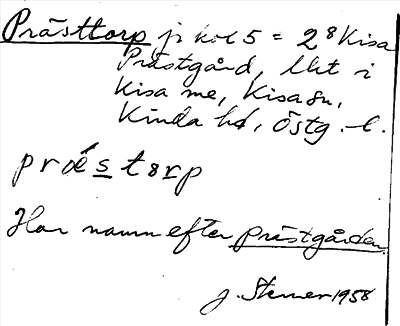 Prästtorp jr kol 5 = 2⁸ Kisa
Prästgård, lht i
Kisa me, Kisa sn,
Kinda hd, Östg. l.
præ´storp
Har namn efter prästgården.
J. Stener 1958